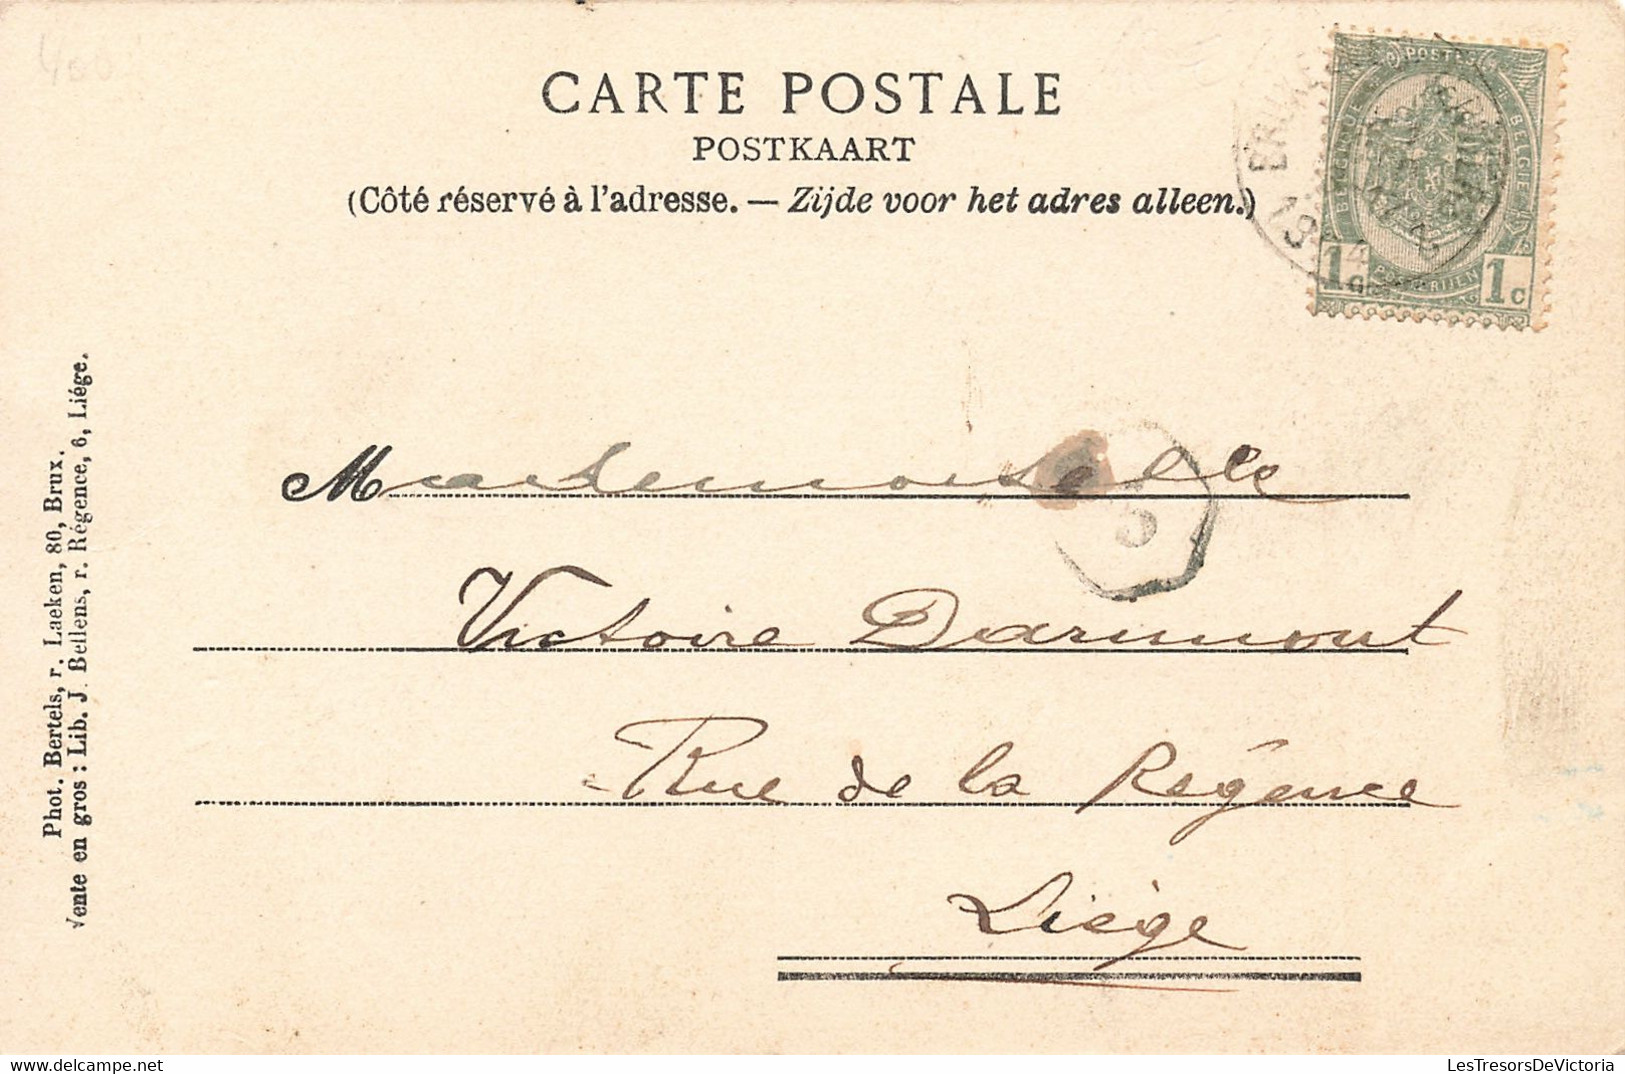 CARTE POSTALE
POSTKAART
(Côté réservé à l'adresse. — Zijde voor het adres alleen.)
POSTES
BELGIQUE
BELGIE
1c
POSTERIJEN
1c
Mademoiselle
5
Victoire Darimont
Rue de la Régence
Liège
Phot. Bertels, r. Laeken, 80, Brux.
Vente en gros : Lib. J. Bellens, r. Régence, 6, Liége.
LesTresorsDeVictoria
delcampe.net